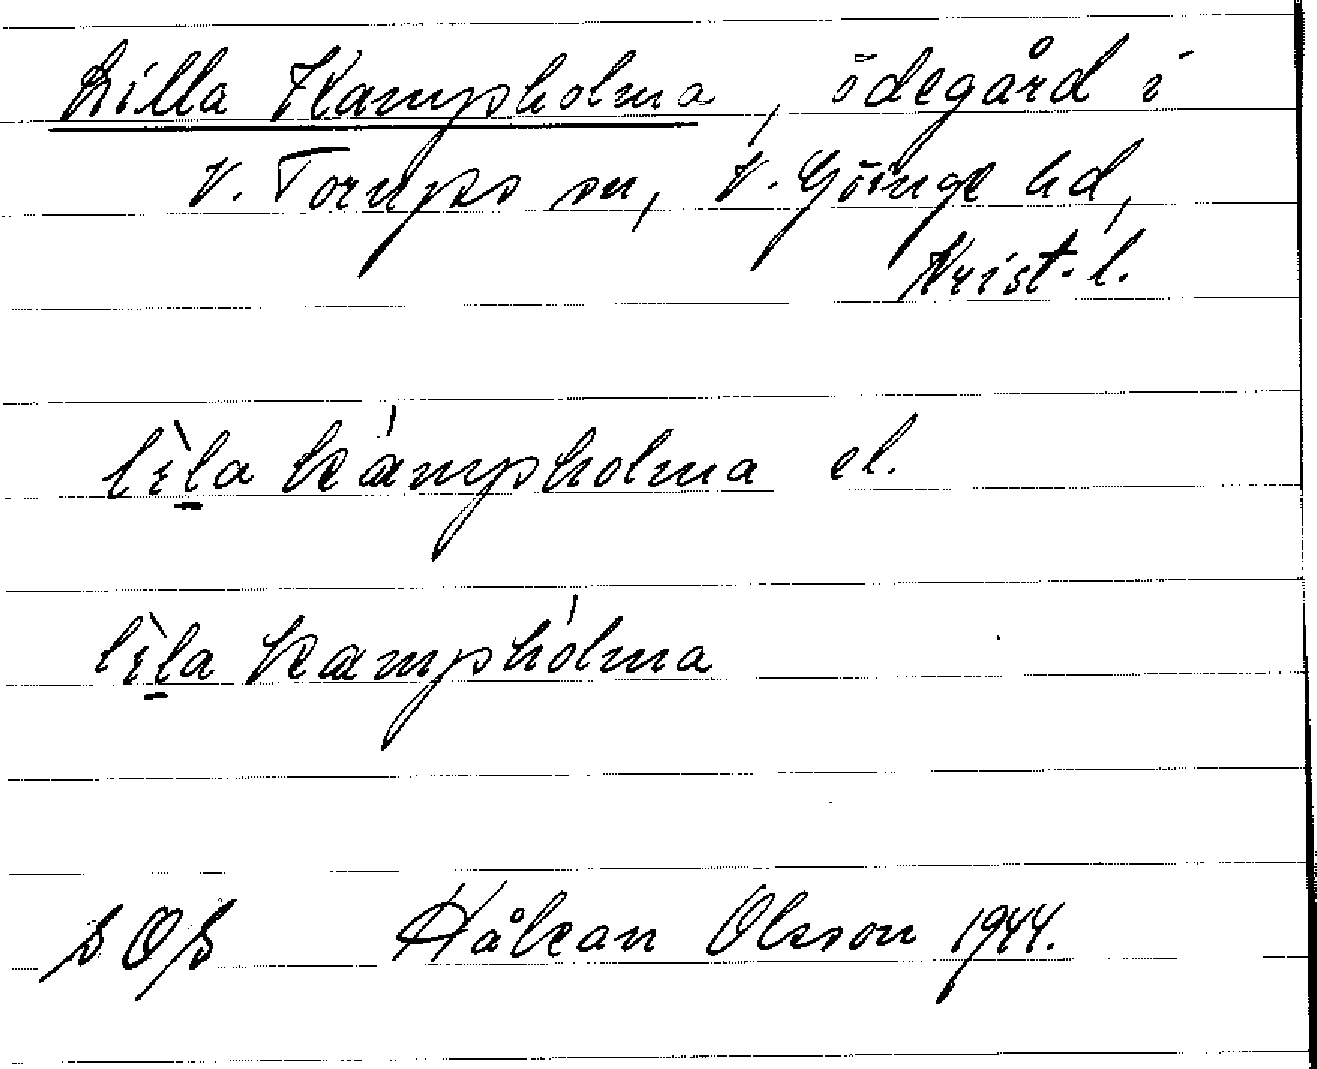 Lilla Kampsholma, ödegård i
V. Torups sn, V. Göinge hd,
Krist. l.
lìla kámpsholma el.
lìla kampshólma
SOS Håkan Olsson 1944.